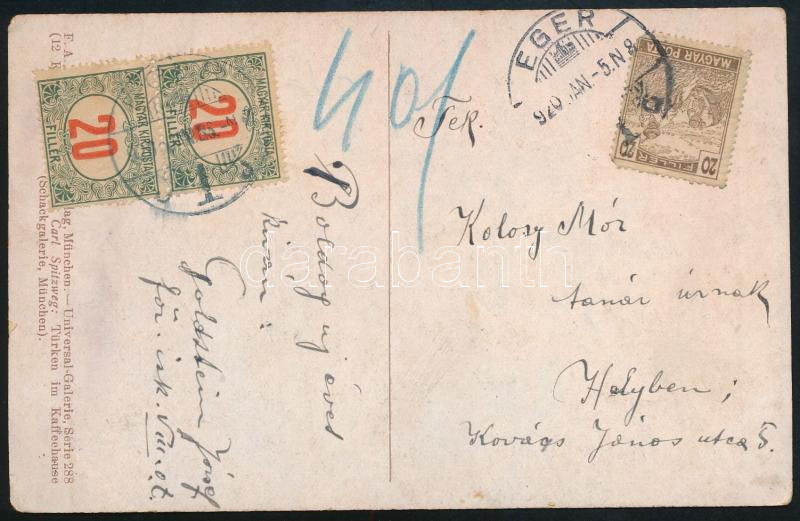 F. A.
(12 K
lag, München. — Universal-Galerie, Serie 288
Carl Spitzweg: Türken im Kaffeehause
(Schackgalerie, München).
MAGYAR KIR. POSTA
20
FILLÉR
MAGYAR KIR. POSTA
20
FILLÉR
1
40f
EGER
920 JAN. -5. N 8
MAGYAR POSTA
20 FILLÉR 20
Boldog új évet
kíván:
Goldstein József
főr. isk.
Tek.
Kolosy Mór
tanár úrnak
Helyben;
Kovács János utca 5.
Darabanth.com